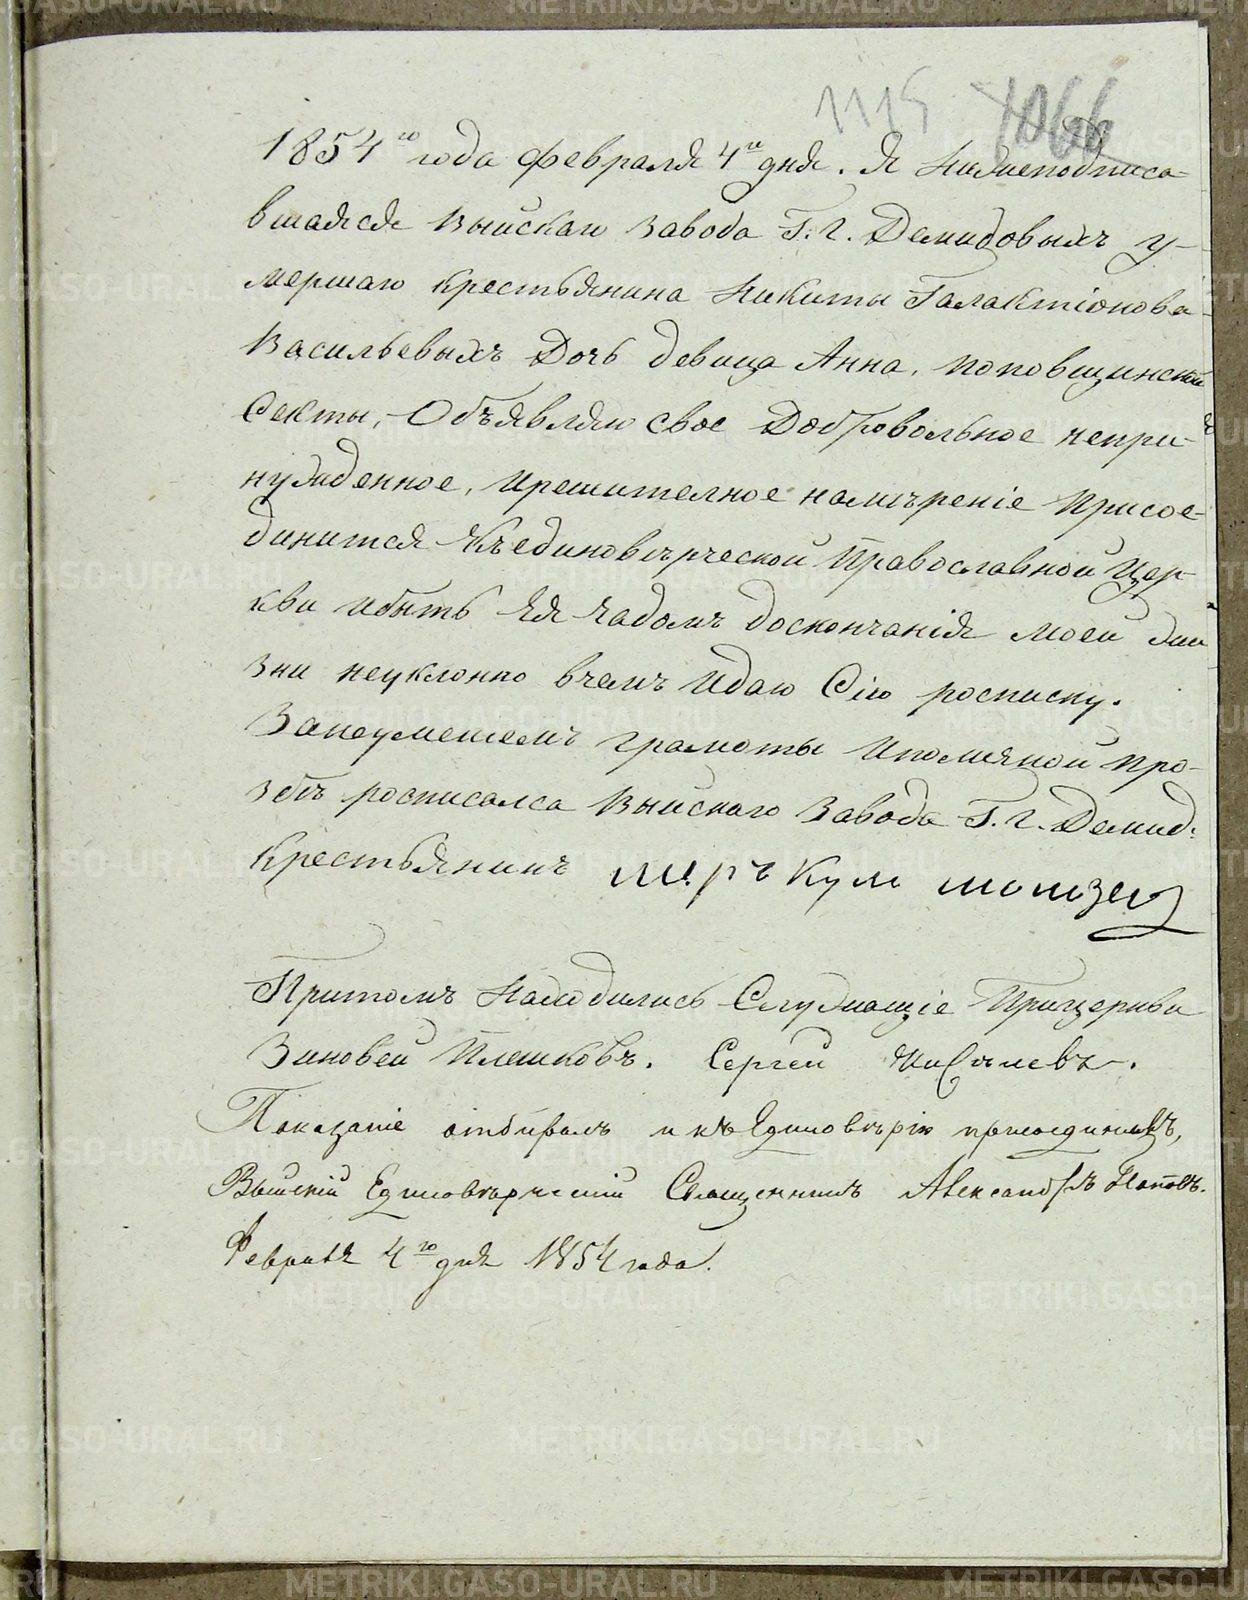 1115 1066
1854го года февраля 4го дня. Я Нижеподписа-
вшаяся Выйскаго Завода Г. Г. Демидовыхъ у-
мершаго крестьянина Никиты Галактіонова
Васильевыхъ Дочь девица Анна, поповщинской
Секты, Объявляю свое Добровольное непри-
нужденное, ирешителное намъреніе Присое-
динится Къединовѣрческой Православной Цер-
кви ибыть Ея Чадомъ доскончанія моей жи
зни неуклонно вчемъ Идаю Сію росписку.
Занеумениемъ грамоты Ипомянной про-
збѣ росписалса Выйскаго Завода Г. Г. Демид:
крестьянинъ
Притомъ Находились Служащіе Прицеркви
Зиновей Плешковъ. Сергей
Показаніе отбиралъ и къ Единовѣрію присоединилъ,
Выйскій Единовѣрческій Священникъ Александръ Поповъ.
Февраля 4го дня 1854 года.
METRIKI.GASO-URAL.RU